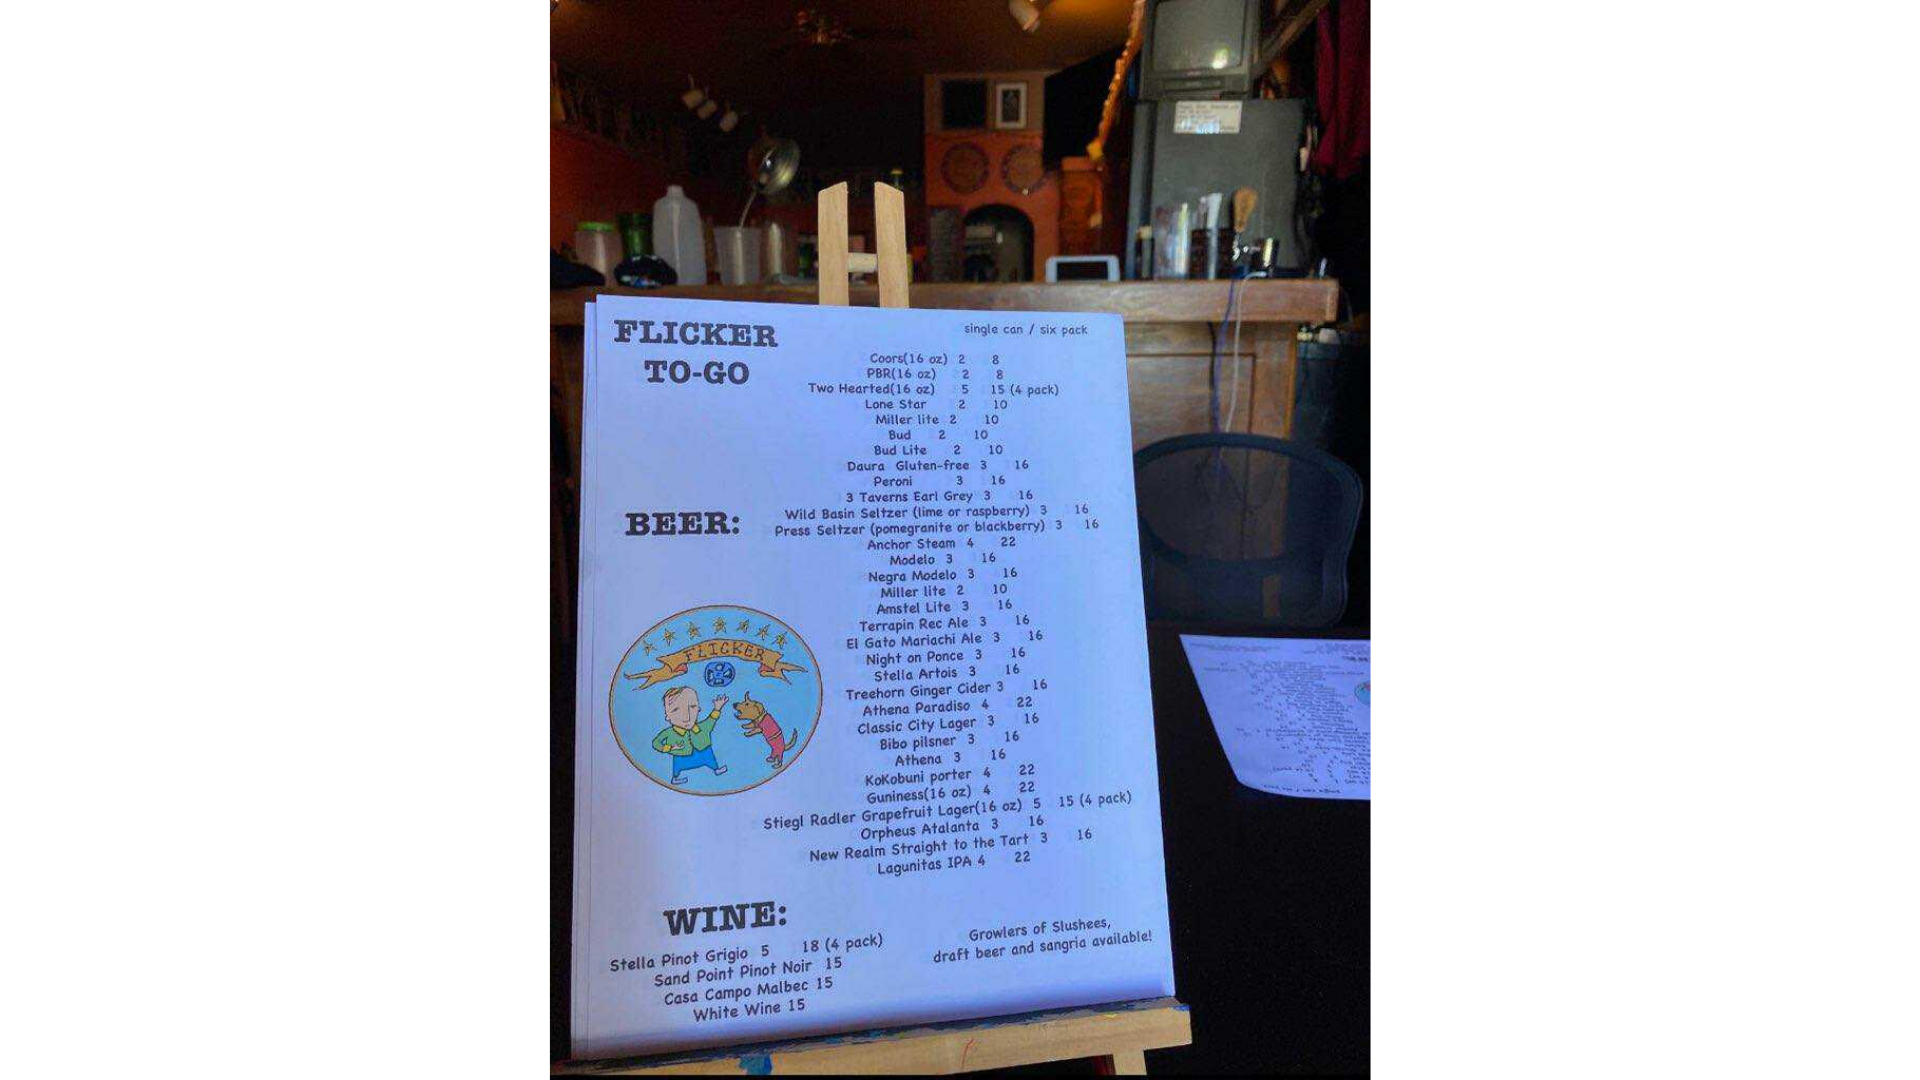 FLICKER
TO-GO
single can / six pack
Coors(16 oz) 2 8
PBR(16 oz) 2 8
Two Hearted(16 oz) 5 15 (4 pack)
Lone Star 2 10
Miller lite 2 10
Bud 2 10
Bud Lite 2 10
Daura Gluten-free 3 16
Peroni 3 16
3 Taverns Earl Grey 3 16
BEER:
Wild Basin Seltzer (lime or raspberry) 3 16
Press Seltzer (pomegranite or blackberry) 3 16
Anchor Steam 4 22
Modelo 3 16
Negra Modelo 3 16
Miller lite 2 10
Amstel Lite 3 16
Terrapin Rec Ale 3 16
El Gato Mariachi Ale 3 16
Night on Ponce 3 16
Stella Artois 3 16
Treehorn Ginger Cider 3 16
Athena Paradiso 4 22
Classic City Lager 3 16
Bibo pilsner 3 16
Athena 3 16
KoKobuni porter 4 22
Guniness(16 oz) 4 22
Stiegl Radler Grapefruit Lager(16 oz) 5 15 (4 pack)
Orpheus Atalanta 3 16
New Realm Straight to the Tart 3 16
Lagunitas IPA 4 22
FLICKER
WINE:
Stella Pinot Grigio 5 18 (4 pack)
Sand Point Pinot Noir 15
Casa Campo Malbec 15
White Wine 15
Growlers of Slushees,
draft beer and sangria available!